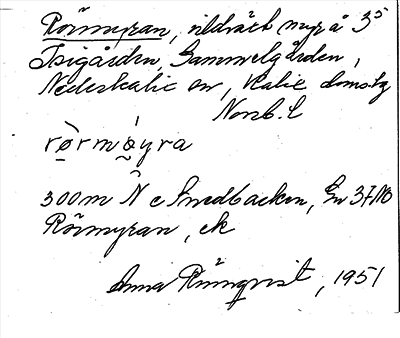 Rörmyran, vildväxt myr å 3⁵
Trigården, Gammelgården,
Nederkalix sn, Kalix domsbg
Norrb. l
rörmøyra
300 m N o Smedbacken, En 37/
Rörmyran, ek
Anna Rünqvist, 1951